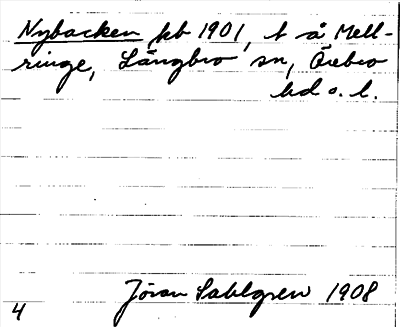 Nybacken kb 1901, t å Mell-
ringe, Längbro sn, Örebro
hd o. l.
Jöran Sahlgren 1908
4